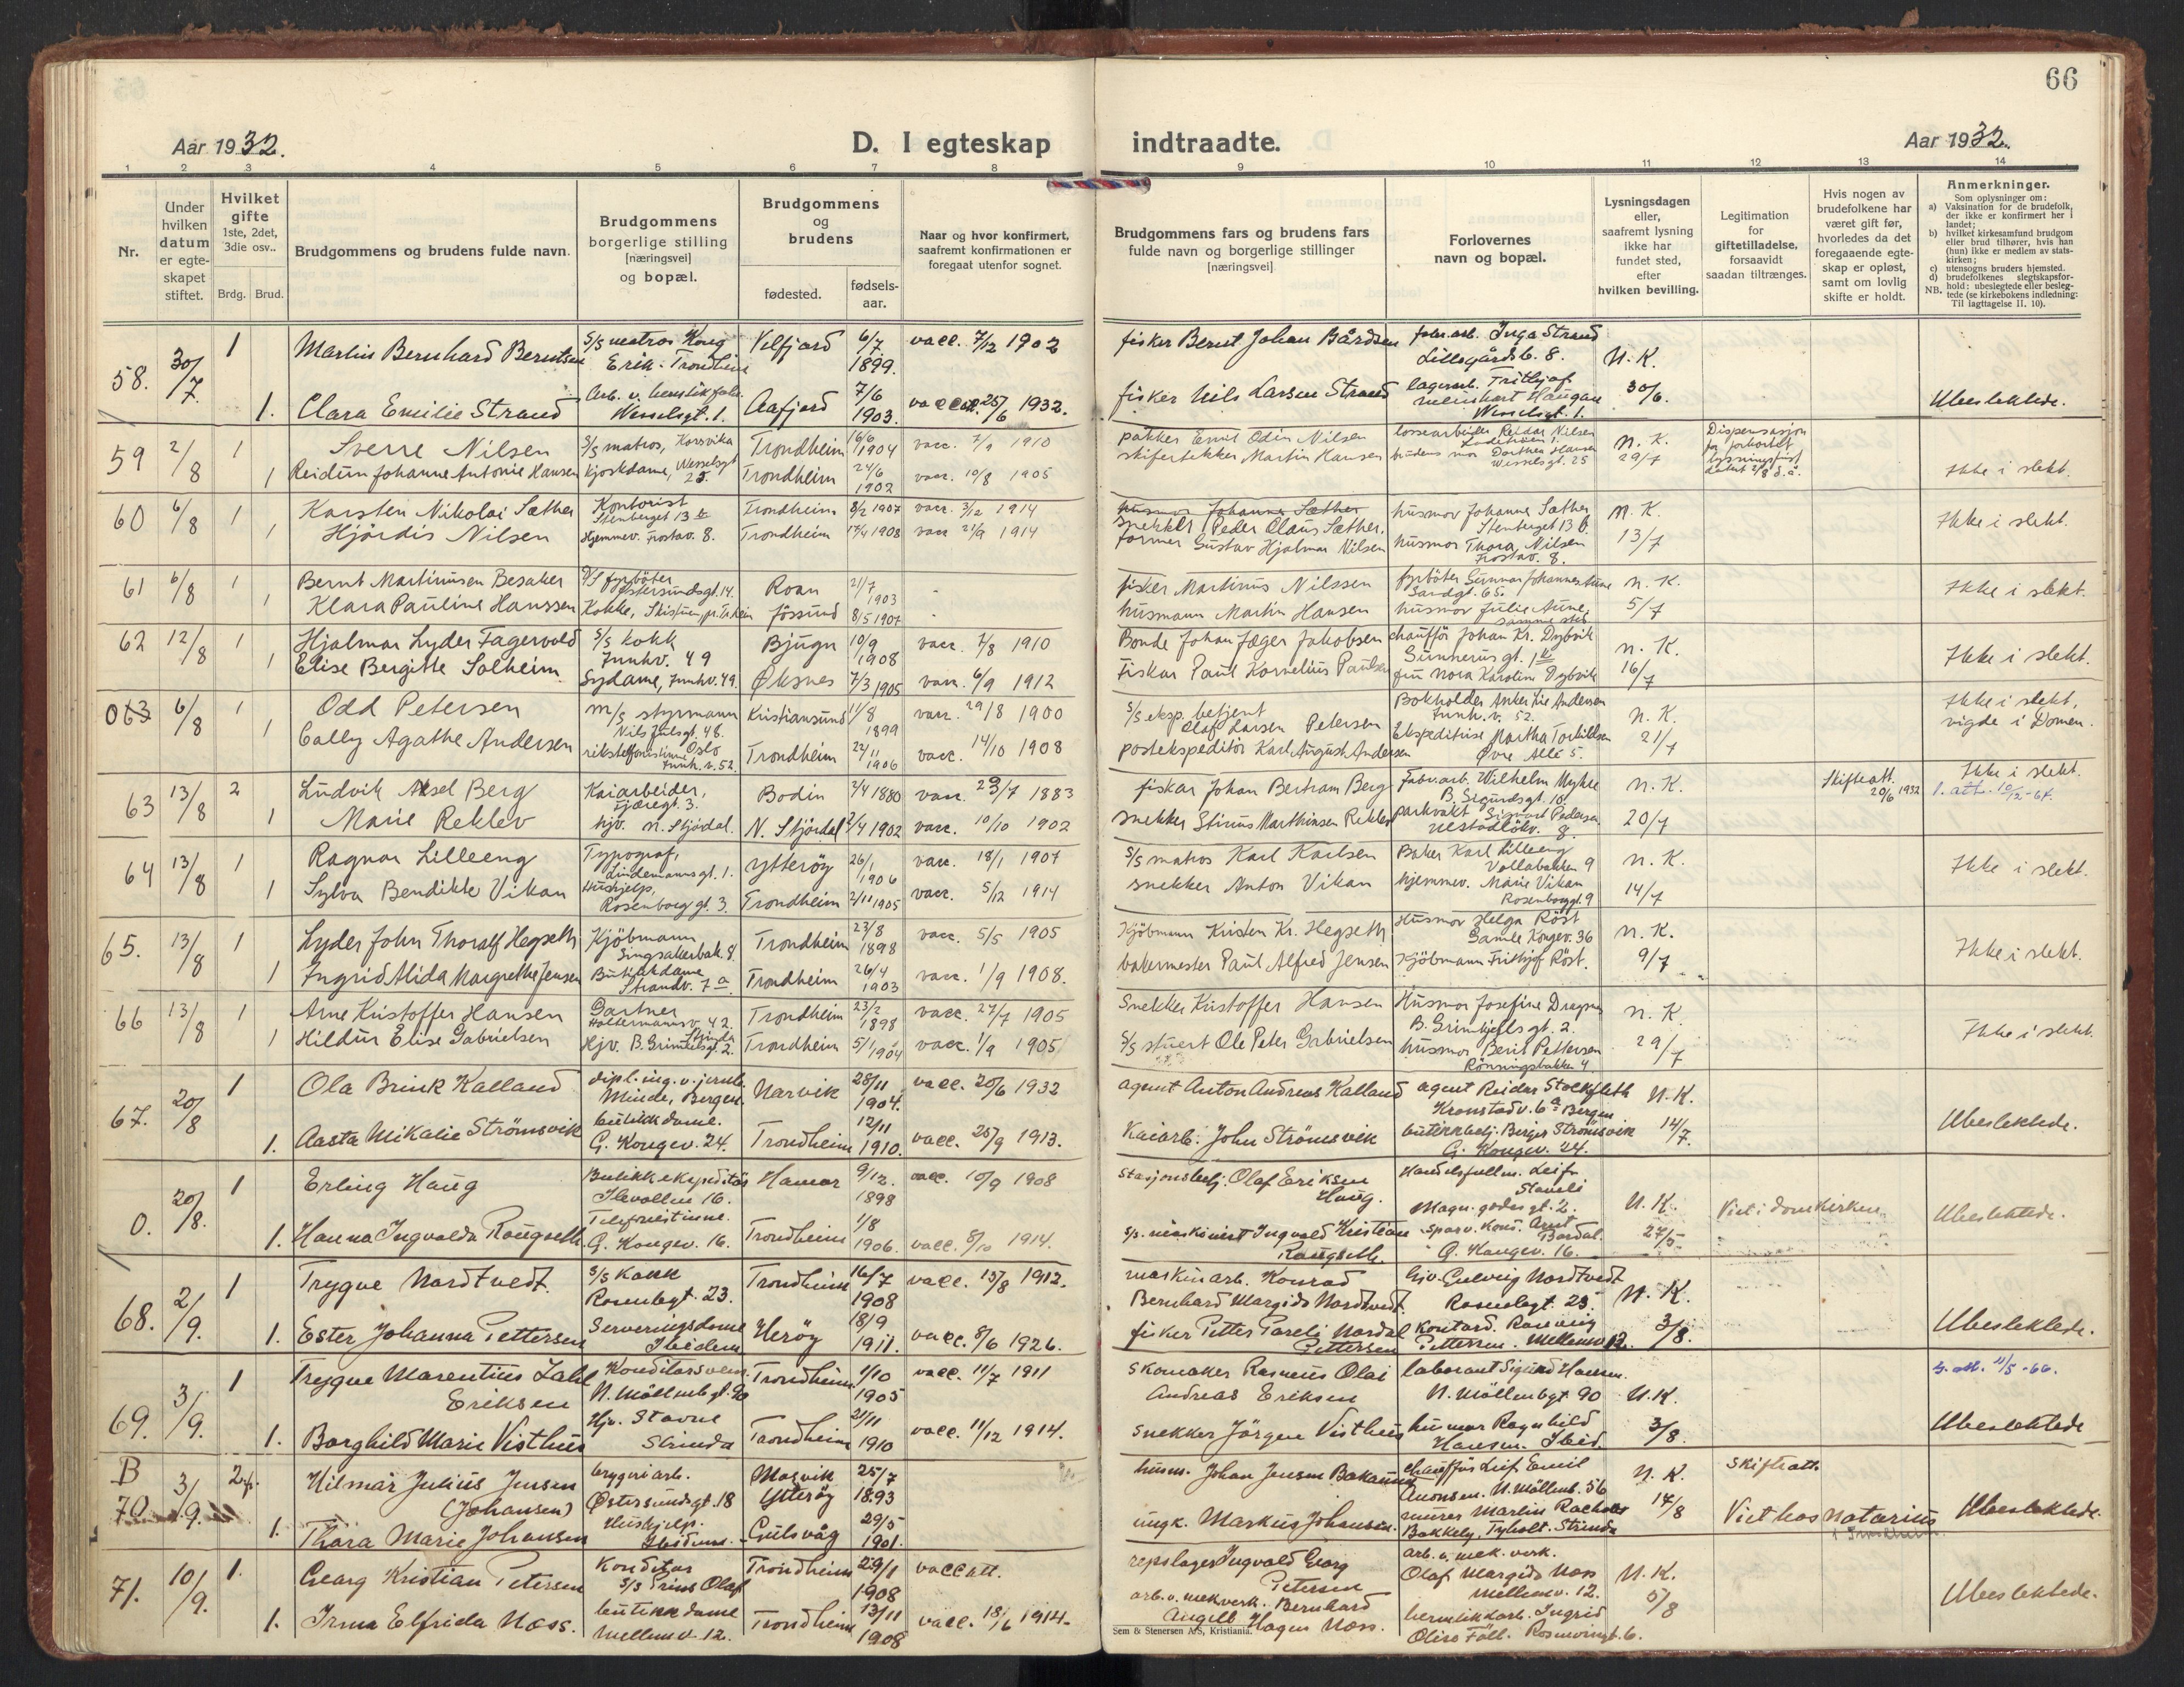 66
Aar 1932.
D. I egteskap indtraadte.
Aar 1932.
1 2 3 4 5 6 7 8 9 10 11 12 13 14
Nr.
Under hvilken datum er egteskapet stiftet.
Hvilket gifte 1ste, 2det, 3die osv..
Brdg. Brud.
Brudgommens og brudens fulde navn.
Brudgommens borgerlige stilling [næringsvei] og bopæl.
Brudgommens og brudens
fødested.
fødselsaar.
Naar og hvor konfirmert, saafremt konfirmationen er foregaat utenfor sognet.
Brudgommens fars og brudens fars fulde navn og borgerlige stillinger [næringsvei].
Forlovernes navn og bopæl.
Lysningsdagen eller, saafremt lysning ikke har fundet sted, efter hvilken bevilling.
Legitimation for giftetilladelse, forsaavidt saadan tiltrænges.
Hvis nogen av brudefolkene har været gift før, hvorledes da det foregaaende egteskap er opløst, samt om lovlig skifte er holdt.
Anmerkninger.
Som oplysninger om:
a) Vaksination for de brudefolk, der ikke er konfirmert her i landet;
b) hvilket kirkesamfund brudgom eller brud tilhører, hvis han (hun) ikke er medlem av statskirken;
c) utensogns bruders hjemsted.
d) brudefolkenes slegtskapsforhold: ubeslegtede eller beslegtede (se kirkebokens indledning: NB. Til Iagttagelse II, 10).
58. 30/7. 1 Martin Bernhard Berntsen S/S matros Kong Erik. Trondheim Velfjord 6/7 1899. vacc. 7/12 1902 fisker Bernt Johan Bårdsen Inga Strand Lillegårdsb. 8. N. K.
1. Clara Emilie Strand Wesselsgt. 1. Aafjord 7/6 1903. vacc. 25/6 1932. fisker Nils Larsen Strand lagerarb. Trithjof Meinhart Haugan Wesselsgt. 1. 30/6. Ubeslektede.
59 2/8 1 Sverre Nilsen S/S matros, Korsvika Trondheim 16/6 1904 vacc. 7/9 1910 pakker Emil Odin Nilsen lossearbeider Reidar Nilsen n. K. Dispensasjon
1 Reidun Johanne Antonie Hansen Kjoskdame, Wesselsgt 25. Trondheim 24/6 1902 vacc. 10/8 1905 skifertekker Martin Hansen brudens mor Dorthea Hansen Wesselsgt. 25 29/7 Ikke i slekt.
60 6/8 1 Karsten Nikolai Sæther Kontorist Stenberget 13 b Trondheim 8/2 1907 vacc. 3/2 1914 husmor Johanne Sæther snekker Peder Claus Sæther. husmor Johanne Sæther Stenberget 13 b. n. K.
1 Hjördis Nilsen Hjemmev. Frostav. 8. Trondheim 17/4 1908 vacc 21/9 1914 former Gustav Hjalmar Nilsen husmor Thora Nilsen Frostav. 8. 13/7 Ikke i slekt.
61 6/8 1 Bernt Martinusen Besaker S/S fyrböter Østersundsgt. 14. Roan 21/7 1903 - fisker Martinus Nilssen fyrböter Gunnar Johannes Aune Sandgt. 65. n. K.
1 Klara Pauline Hanssen Kokke, Skistuen, pr. Tr.heim Jössund 8/5 1907 husmann Martin Hansen husmor Julie Aune, samme sted 5/7 Ikke i slekt.
62 12/8 1 Hjalmar Lyder Fagervold S/S kokk Innhv. 49 Bjugn 10/9 1908 vacc. 7/8 1910 Bonde Johan Jæger Jakobsen chauffør Johan Kr. Dybvik Gunnerusgt. 1 b n. K.
1 Elise Bergitte Solheim Sydame, Innhv. 49. Øksnes 7/3 1905 vacc. 6/9 1912 Fisker Paul Kornelius Paulsen fru Nora Karoline Dybvik 16/7 Ikke i slekt.
063 6/8 1 Odd Petersen m/s styrmann Nils Juelsgt. 48. Kristiansund 11/8 1899 vacc. 29/8 1900 S/S eksp. betjent Olaf Larsen Petersen Bokholder Anker Lie Andersen Innh. v. 52. n. K.
1 Cally Agathe Andersen rikstelefonistinne Oslo Innh. v. 52. Trondheim 22/11 1906 vacc. 14/10 1908 postekspeditör Karl August Andersen Ekspeditrise Martha Torkildsen Øvre Alle 5. 21/7 Ikke i slekt, vigde i Domen.
63 13/8 2 Ludvik Aksel Berg Kaiarbeider, Fjæregt. 3. Bodin 2/4 1880 vacc. 29/7 1883 fisker Johan Bertram Berg Fabr.arb. Wilhelm Myhre B. Sigurdsgt. 10. n. K. Skifteatt. 20/6 1932
1 Marie Reklev hjv. N. Stjørdal. N. Stjördal 2/4 1902 vacc. 10/10 1902 snekker Stinus Marthinsen Reklev parkvakt Sigvart Pedersen 8. 20/7 Ikke i slekt. l. att. 10/12-67.
64 13/8 1 Ragnar Lilleeng Typograf, Lindemannsgt. 1. Ytteröy 26/1 1906 vacc. 18/1 1907 S/S matros Karl Karlsen Baker Karl Lilleeng Vollabakken 9 n. K.
1 Sylva Bendikte Vikan Hushjelp, Rosenborg gt. 3. Trondheim 2/11 1905 vacc. 5/12 1914 snekker Anton Vikan hjemmev. Marie Vikan Rosenborggt. 9 14/7 Ikke i slekt.
65. 13/8 1 Lyder John Thoralf Hegseth Kjöbmann Singsakerbak. 8. Trondheim 23/8 1898 vacc. 5/5 1905 Kjöbmann Kristen Kr. Hegseth Husmor Helga Röst Gamle Kongev. 36 n. K.
1 Ingrid Alida Margrethe Jensen Butikkdame Strandv. 7 a Trondheim 26/4 1903 vacc. 1/9 1908. bakermester Paul Alfred Jensen Kjöbmann Frithjof Röst. 9/7 Ikke i slekt.
66 13/8 1 Arne Kristoffer Hansen Gartner 42. Strinda Trondheim 23/2 1898 vacc. 27/7 1905 Snekker Kristoffer Hansen Husmor Josefine Dragsen B. Grimkjelsgt. 2. n. K.
1 Hildur Elise Gabrielsen Hjv. B. Grimkelsgt. 2. Trondheim 5/1 1904 vacc. 1/9 1905 S/S stuert Ole Peter Gabrielsen husmor Berit Pettersen Rönningsbakken 4 29/7 Ikke i slekt.
67. 20/8 1 Ola Brink Kalland dipl. ing. v. jernb. Minde, Bergen. Narvik 28/11 1904. vacc. 20/6 1932 agent Anton Andreas Kalland agent Reidar Stockfleth Kronstadv. 6 a Bergen. N. K.
1. Aasta Mikalie Strömsvik butikkdame. G. Kongev. 24. Trondheim 12/11 1910. vacc. 25/9 1913. Kaiarb. John Strömsvik butikkbetj. Birger Strömsvik G. Kongev. 24. 14/7. Ubeslektede.
0. 20/8. 1 Erling Haug Butikkekspeditör Ilevollen 16. Hamar 9/12. 1898 vacc. 10/9 1908 Stasjonsbetj. Olaf Eriksen Haug. Handelsfullm. Leif Magn. godes gt. 2. N. K. Viet i domkirken
1. Hanna Ingvalda Raugseth Telefonistinne. G. Kongev. 16. Trondheim 1/8 1906. vacc. 8/10 1914. S/S. maskinist Ingvald Kristian Raugseth. sparv. kond. Arnt Bardal. G. Kongev. 16. 27/5 Ubeslektede.
68. 2/9. 1 Trygve Nordtvedt S/S Kokk Rosenbgt. 23. Trondheim 16/7 1908 vacc. 13/8 1912. maskinarb. Konrad Bernhard Margido Nordtvedt. hjv. Gulveig Nordtvedt Rosenbgt. 23. N. K.
1. Ester Johanna Pettersen Serveringsdame Ibidem Herøy 18/9 1911. vacc. 8/6 1926. fisker Petter Pareli Nordal Pettersen Kontord. Pettersen. Mellemv. 12. 3/8. Ubeslektede.
69. 3/9. 1 Trygve Marentius Eriksen Konditorsvenn. N. Möllenbgt. 90 Trondheim 1/10 1905 vacc. 11/7 1911 Skomaker Rasmus Olai Andreas Eriksen laborant Sigurd Hansen. N. Möllenbgt 90 N. K. 11/5-66.
1. Borghild Marie Visthus Hjv. Stavne Strinda Trondheim 21/11 1910 vacc. 11/12 1914. Snekker Jörgen Visthus husmor Ragnhild Hansen. Ibid. 3/8. Ubeslektede
B 70. 3/9. 2 Hilmar Julius Jensen (Johansen) bryggeriarb. Østersundsgt. 18 Mosvik Ytteröy 25/7 1893 husm. Johan Jensen Bakaunet chauffør Leif Emil Aronsen. N. Möllenb. 56 N. K. Skifteatt.
1. Thora Marie Johansen Hushjelp. Ibidem. Gulsvåg 29/5 1901. ungk. Markus Johansen. murer Martin Bakkely, Tyholt. Strinda 17/8 Viet hos Notarius Ubeslektede.
71. 10/9. 1. Georg Kristian Petersen Konditor S/S Prins Olaf Trondheim 29/1 1908 vacc att. repslager Ingvald Georg Petersen arb. v. mek. verk. Olaf Margido Moss Mellemv. 12. N. K.
1. Irma Elfrida Moss. butikkdame Mellemv. 12. Trondheim 13/11 1908 vacc. 18/6 1914. arb. v. mek verk. Bernhard Angell Hagen Moss. hermetikkarb. Ingrid Rosenvingt. 6. 5/8 Ubeslektede.
Sem & Stenersen A/S, Kristiania.